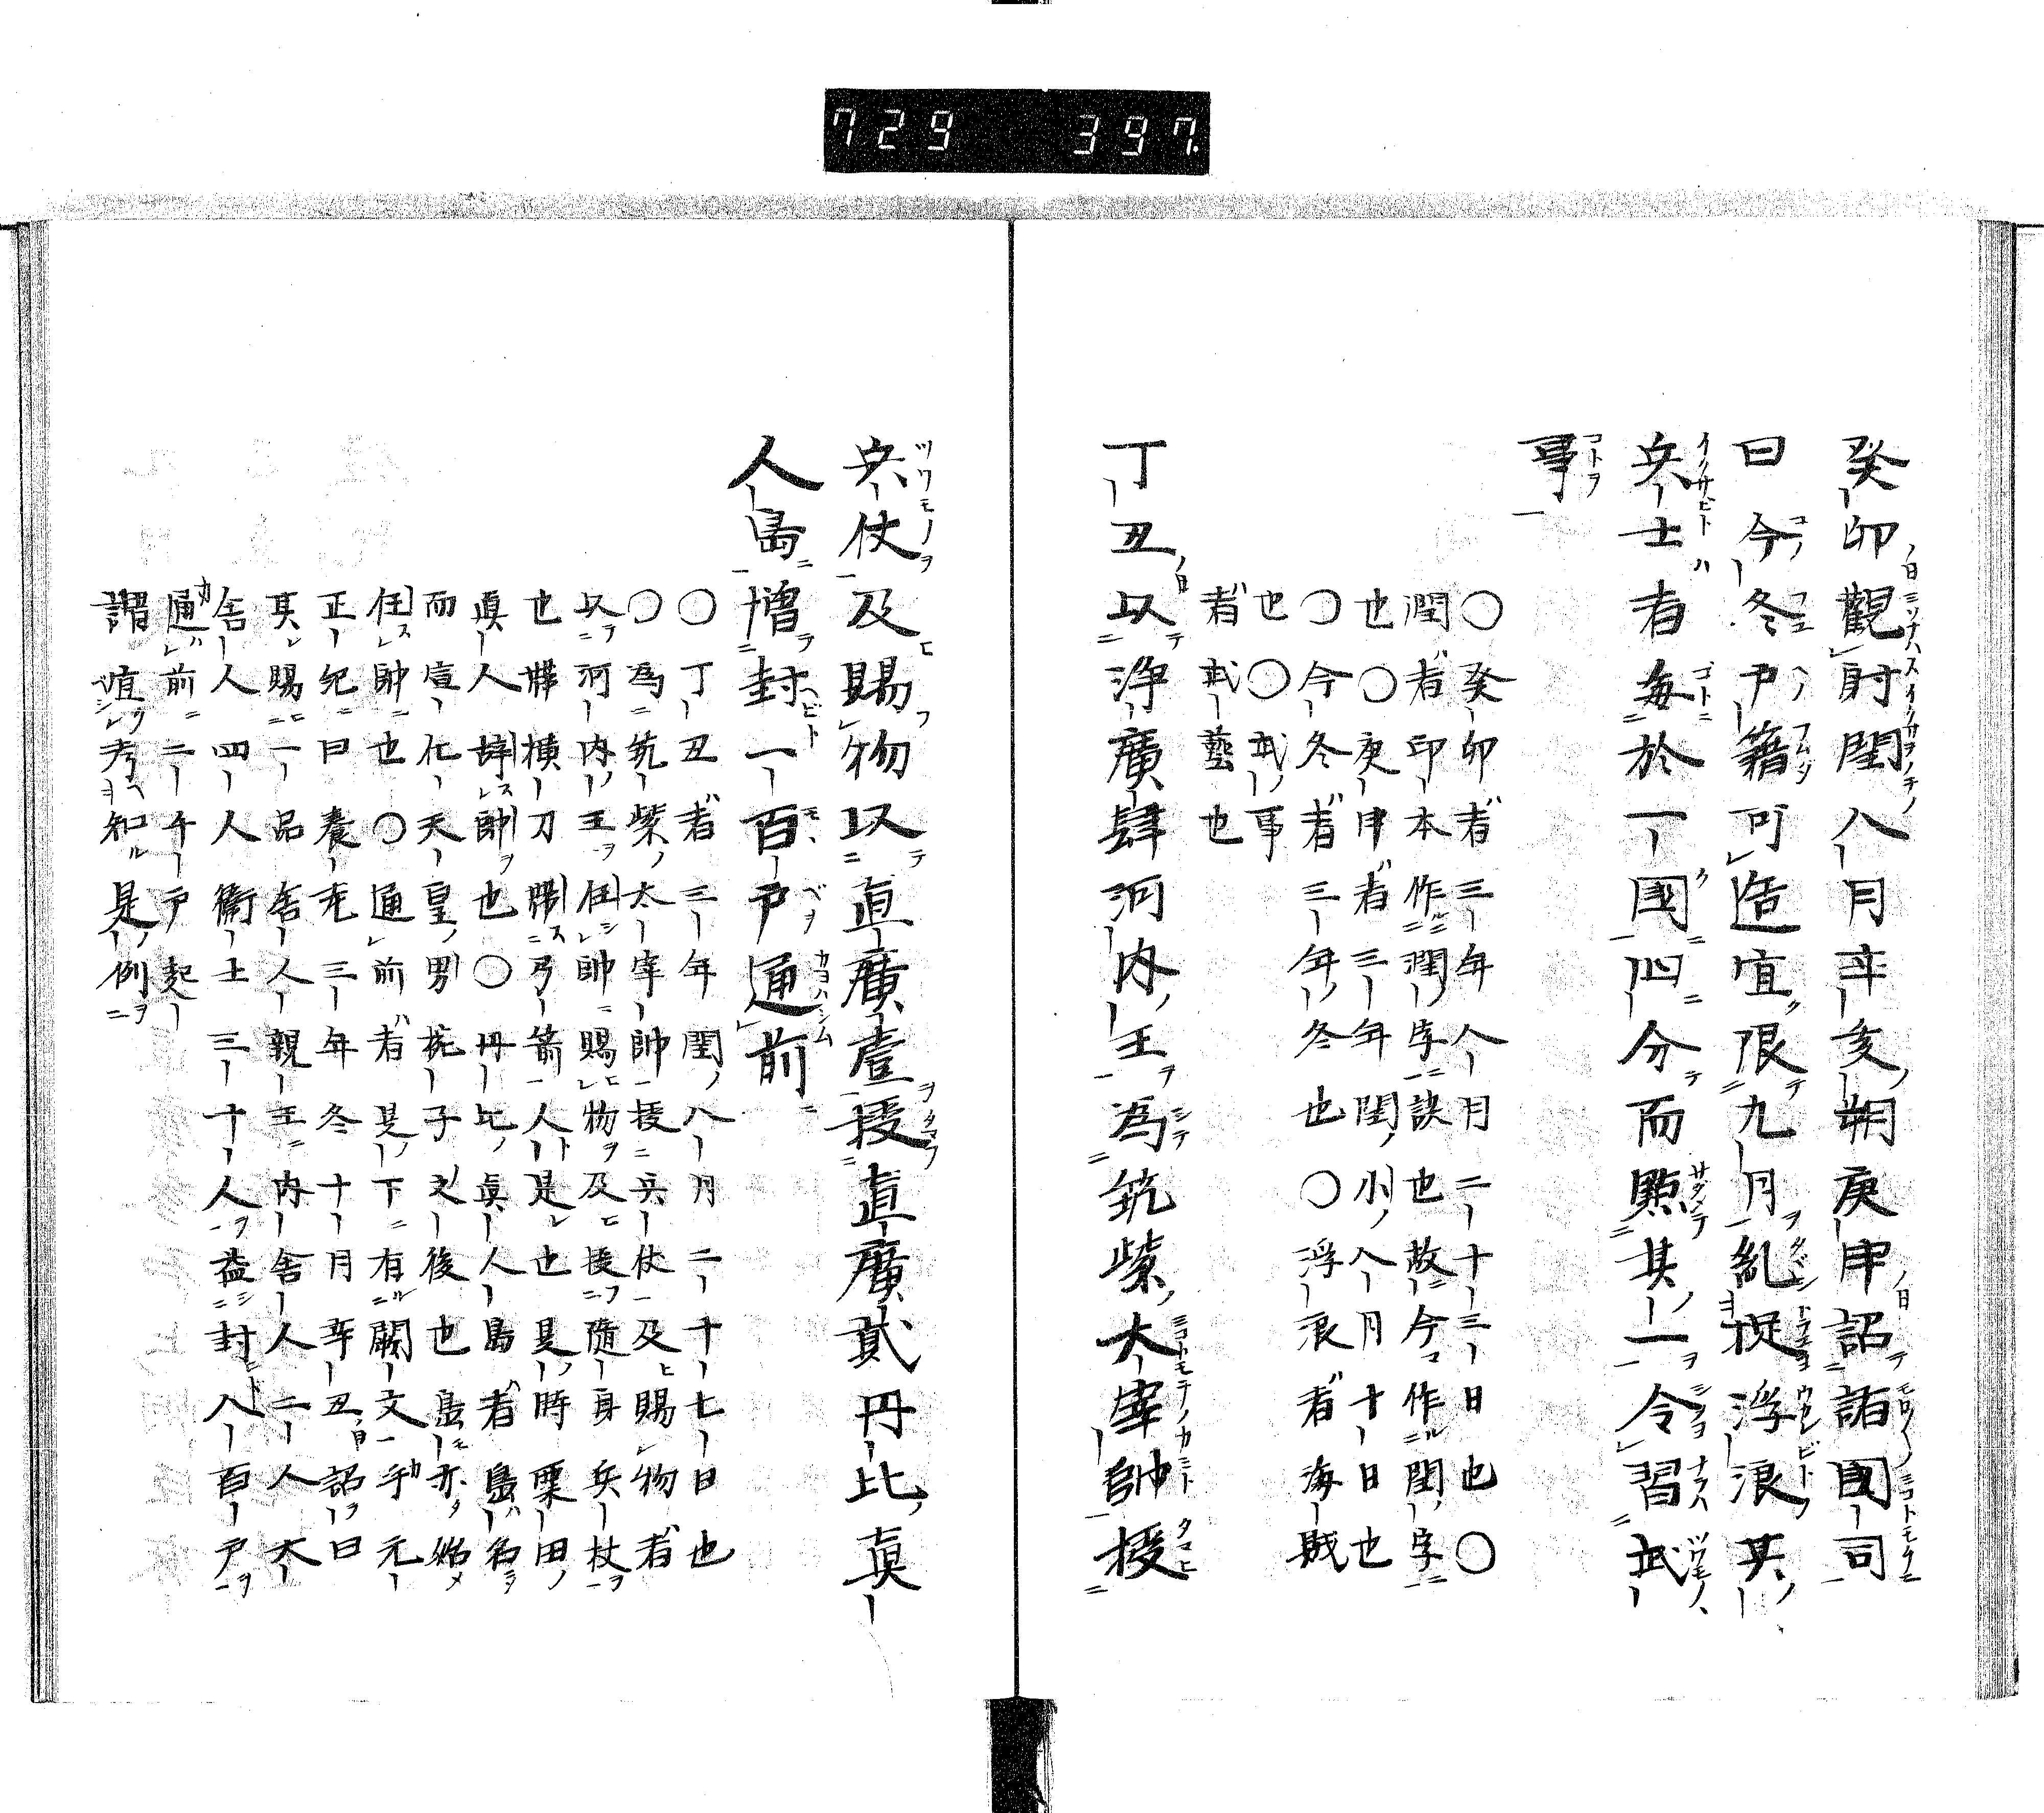 729 397.
癸卯觀射閏八月辛亥朔庚申詔諸國司
曰今冬戸籍可造宜限九月糺捉浮浪其
兵士者毎於一國四分而點其一令習武
事
〇癸卯者三年八月二十三日也〇
潤者印本作潤字訣也故今作閏字
也〇庚申者三年閏小八月十日也
〇今冬者三年冬也〇浮浪者海賊
也〇武事
者武藝也
丁丑以浄廣肆河内王為筑紫大宰帥授
兵仗及賜物以直廣壹授直廣貳丹比真
人島増封一百戸通前
〇丁丑者三年閏八月二十七日也
〇為筑紫太宰帥授兵仗及賜物者
以河内王任帥賜物及授隨身兵杖
也帶横刀帶弓箭人是也是時粟田
真人辞帥也〇丹比真人島者島名
而宣化天皇男之後也島亦始
任帥也〇通前者是下有闕文乎元
正紀曰養老三年冬十月辛丑詔曰
其賜一品舎人親王内舎人二人大
舎人四人衛士三十人益封八百戸
通前二千戸起
謂直考知是例